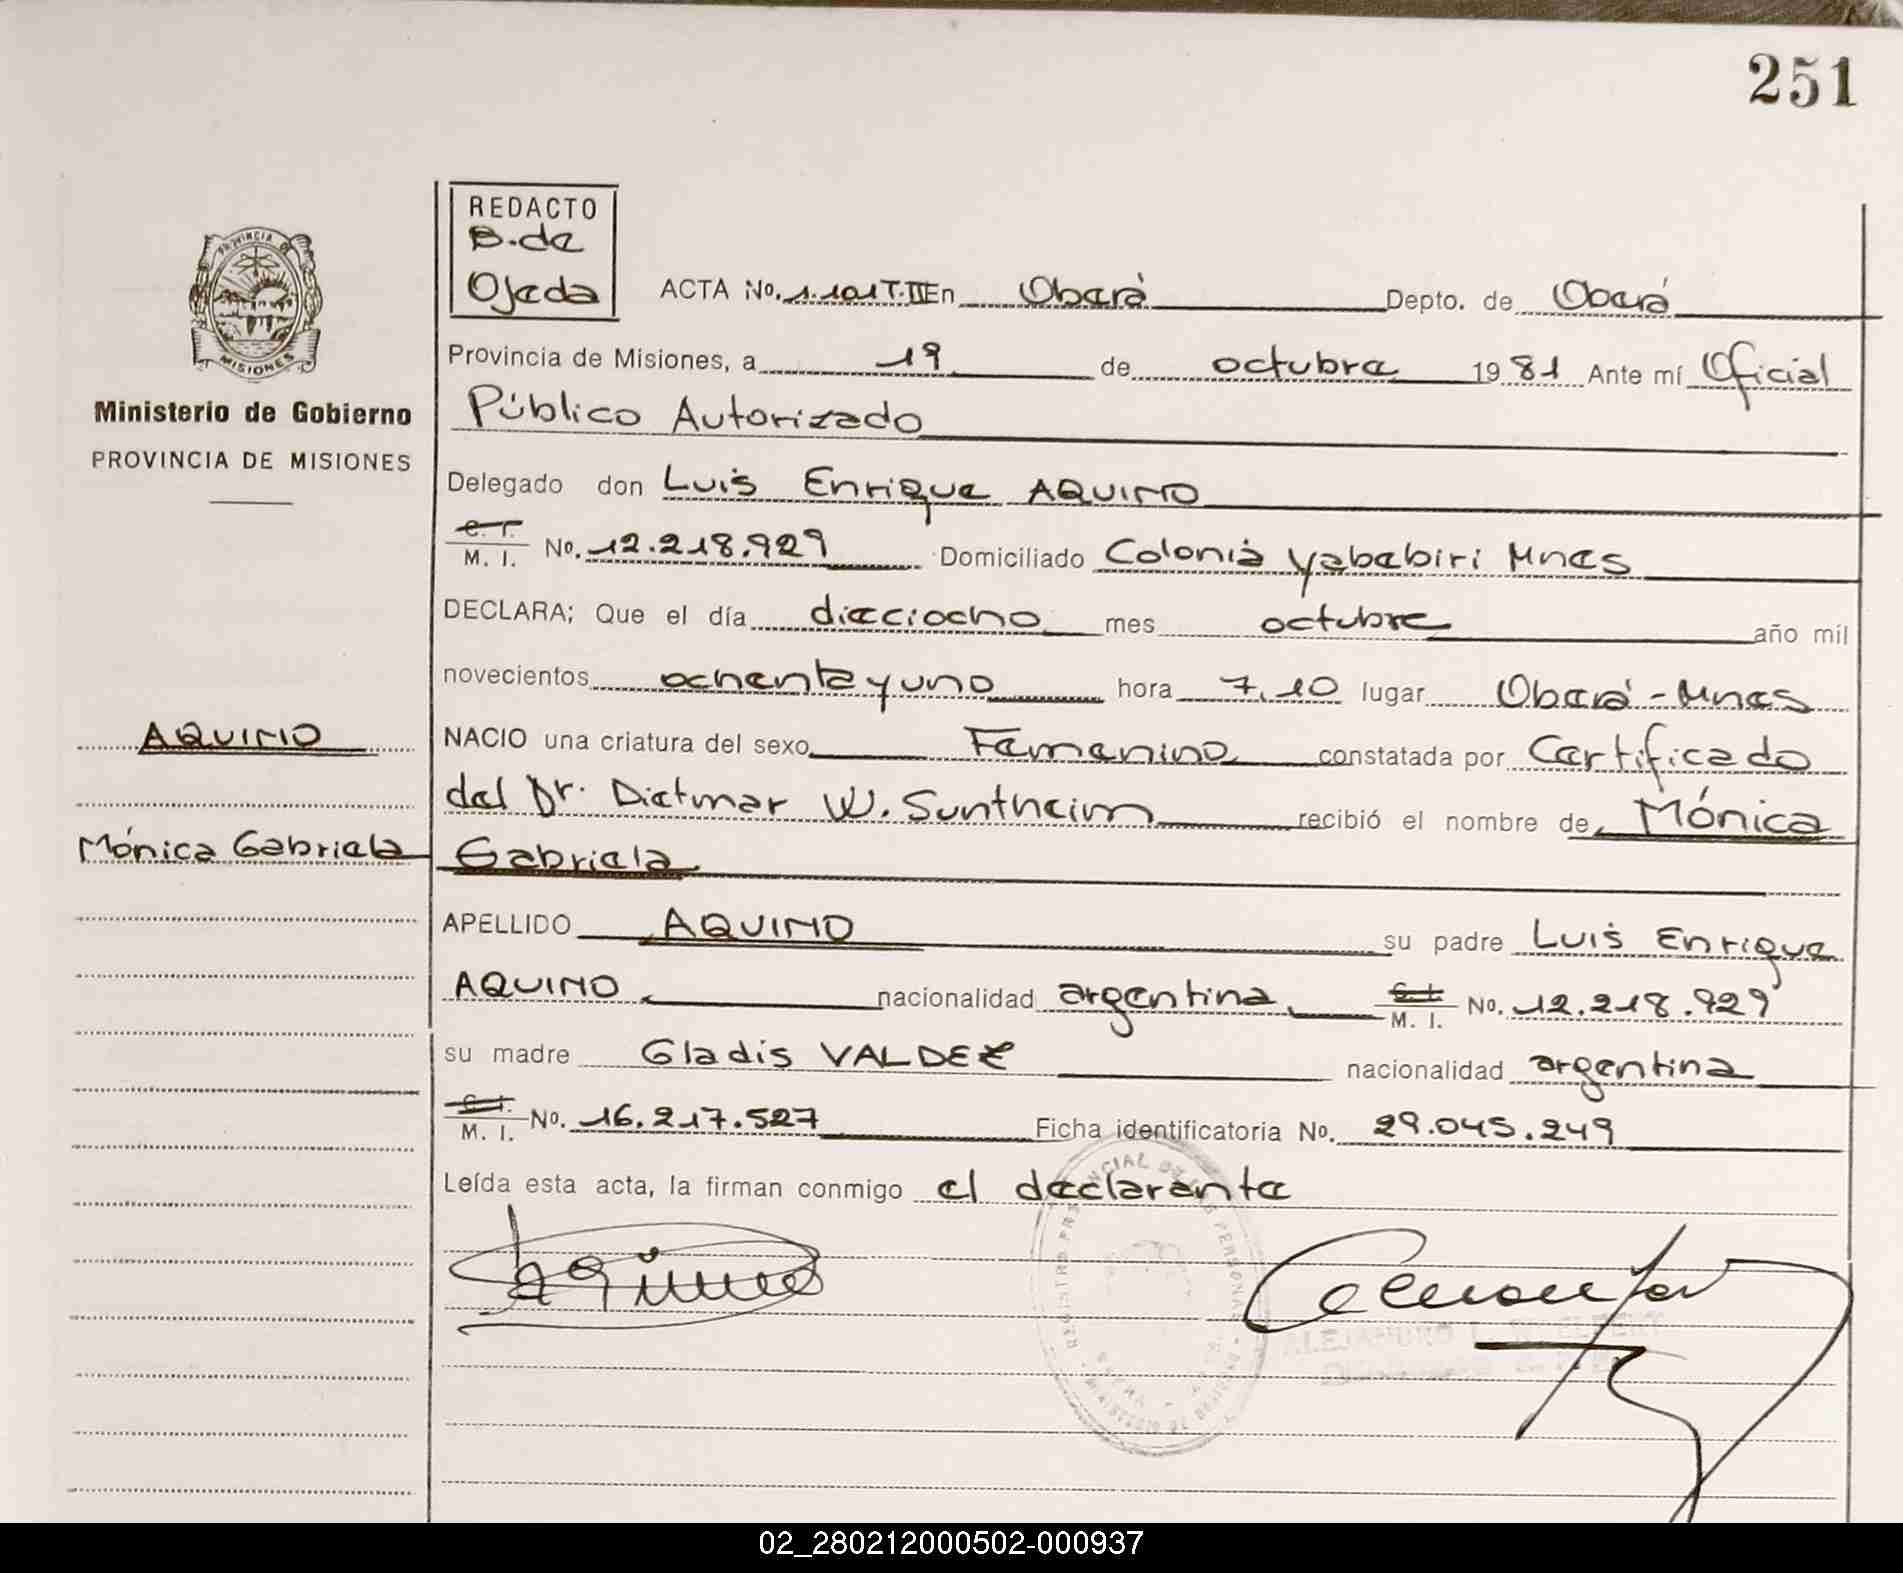 251
REDACTO
B. de
Ojeda
ACTA No. 1.101 T. III En Oberá Depto. de Oberá
Provincia de Misiones, a 19 de octubre 1981 Ante mí Oficial
Público Autorizado
PROVINCIA DE
MISIONES
Ministerio de Gobierno
PROVINCIA DE MISIONES
Delegado don Luis Enrique AQUINO
C. I.
M. I. No. 12.218.929 Domiciliado Colonia Yabebiri Mnes
DECLARA; Que el día dieciocho mes octubre año mil
novecientos ochenta y uno hora 7.10 lugar Oberá - Mnes
AQUINO
NACIO una criatura del sexo Femenino constatada por Certificado
del Dr. Dietmar W. Suntheim recibió el nombre de Mónica
Mónica Gabriela
Gabriela
APELLIDO AQUINO su padre Luis Enrique
AQUINO nacionalidad argentina C. I.
M. I. No. 12.218.929
su madre Gladis VALDEZ nacionalidad argentina
C. I.
M. I. No. 16.217.527 Ficha identificatoria No. 29.045.249
Leída esta acta, la firman conmigo el declarante
REGISTRO PROVINCIAL DE LAS PERSONAS
ALEJANDRO
02_280212000502-000937